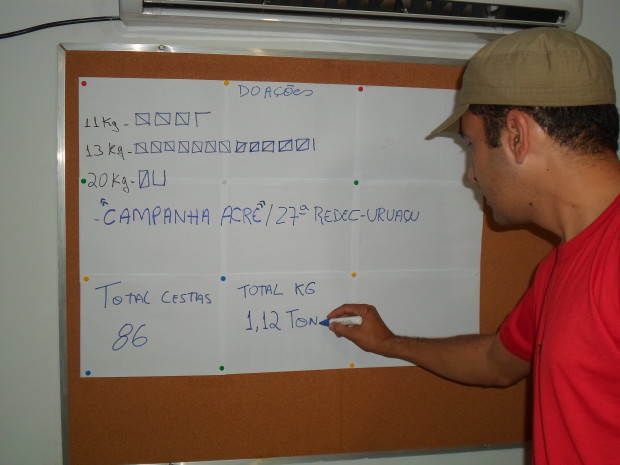 DOAÇÕES
11Kg -
13 Kg -
20 Kg -
- "CAMPANHA ACRE"/27ª REDEC-URUAÇU
TOTAL CESTAS
TOTAL KG
86
1,12 TON